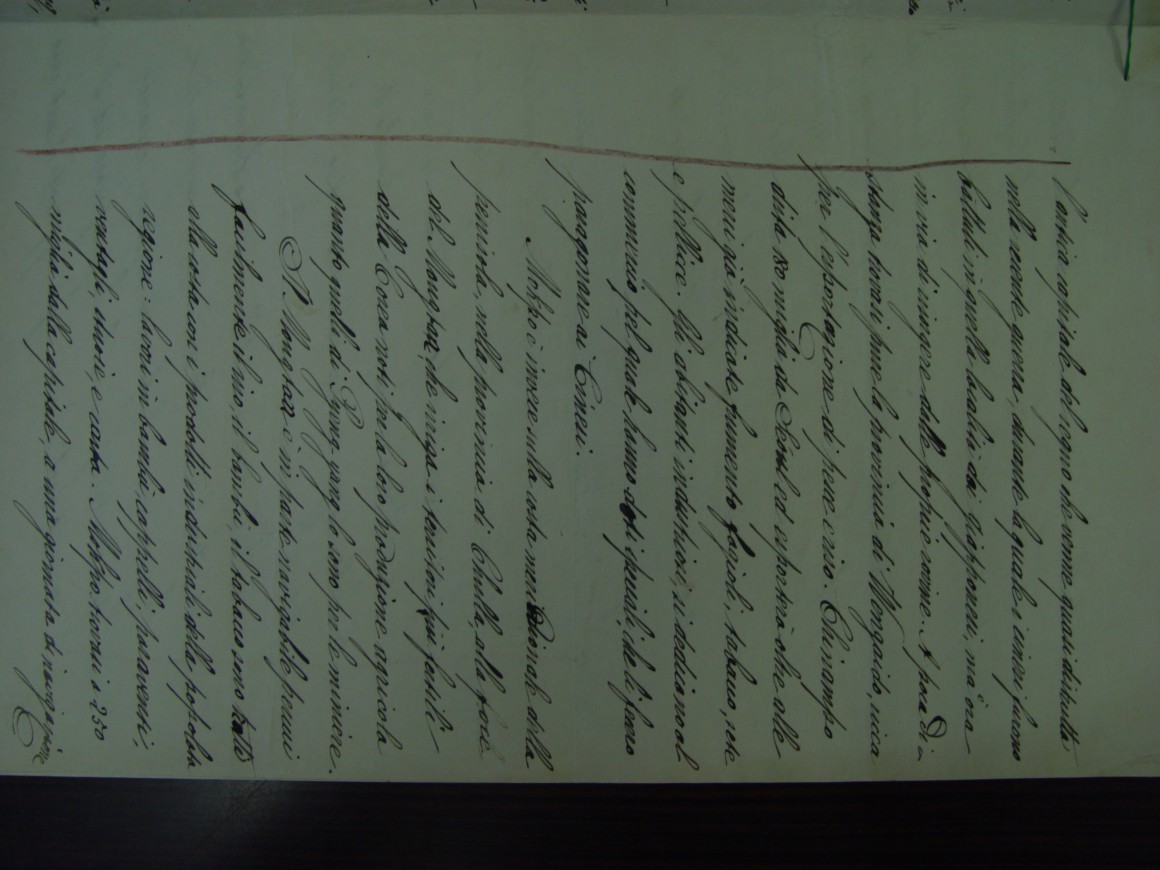 l'antica capitale del regno che venne quasi distrutta
nella recente guerra, durante la quale i cinesi furono
battuti in quella località dai giapponesi, ma è ora
in via di risorgere dalle proprie rovine. A poca di-
stanza trovasi pure la provincia di Wonguido, ricca
per l'esportazione di pure e riso. Chinampo
dista 80 miglia da Seoul ed esporterà oltre alle
merci già indicate frumento, fagioli, tabacco, sete
e pellicce. Gli abitanti industriosi, si dedicano al
commercio pel quale hanno doti speciali, che li fanno
paragonare ai Cinesi.
Mokpo è invece nella costa meridionale della
penisola, nella provincia di Chulla, alla foce
del Mongtan, che irriga i territori più fertili
della Corea noti per la loro produzione agricola
quanto quelli di Pyung-yang lo sono per le miniere.
Il Mongtan è in parte navigabile per cui
facilmente il riso, il bambù, il tabacco sono tratti
alla costa con i prodotti industriali della popolosa
regione: lavori in bambù, cappelli, paraventi,
ventagli, stuoie e carta. Mokpo trovasi a 250
miglia dalla capitale, a una giornata di navigazione